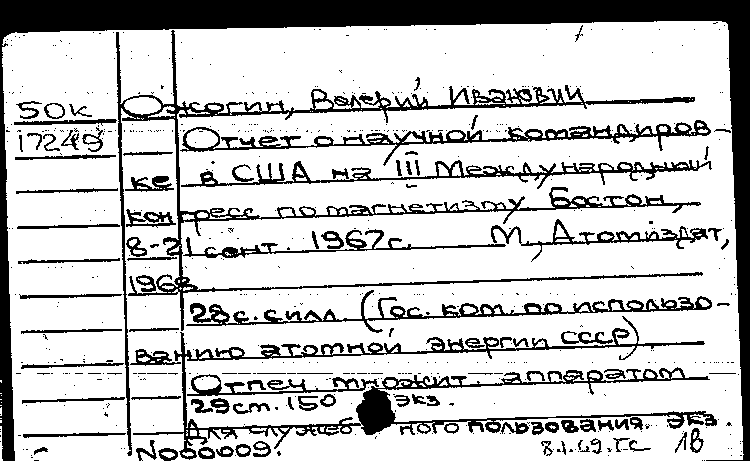 50к Ожогин, Валерий Иванович
17249 Отчет о научной командиров-
ке в США на III Международный
конгресс по магнетизму Бостон,
8-21 сент. 1967г. М., Атомиздат,
1968.
28с. с илл. (Гос. ком. по использо-
ванию атомной энергии СССР).
Отпеч. множит. аппаратом
29см. 150 экз.
Для служебного пользования. Экз.
№00009.
8.1.69. ГС 1В